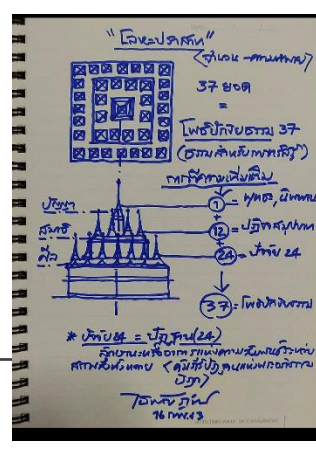 "โลหะปราสาท"
(จำนวน - ความหมาย)
37 ยอด
=
โพธิปักขิยธรรม 37
(ธรรมสำหรับการตรัสรู้)
การตีความเพิ่มเติม
ปัญญา
สมาธิ
ศีล
1 = พุทธะ, นิพพาน
+
12 = ปฏิจสมุปบาท
+
24 = ปัจจัย 24
37 = โพธิปักขิยธรรม
* ปัจจัย 24 = ปัฏฐาน (24)